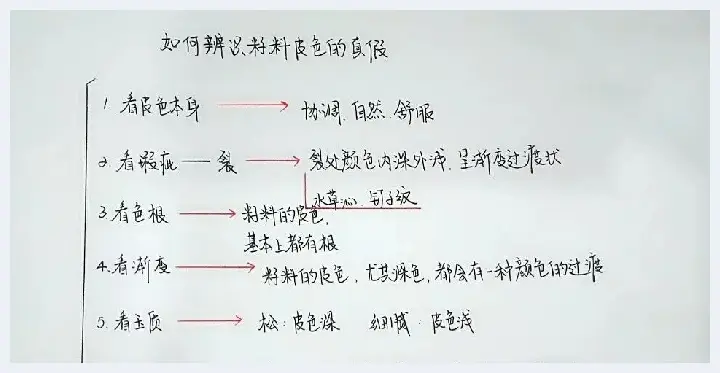 如何辨识籽料皮色的真假
1. 看皮色本身 → 协调.自然.舒服
2. 看瑕疵 — 裂 → 裂处颜色内深外浅.呈渐变过渡状
水草沁.钉子纹
3. 看色根 → 籽料的皮色,
基本上都有根
4. 看渐变 → 籽料的皮色,尤其深色,都会有一种颜色的过渡
5. 看玉质 → 松:皮色深 细腻:皮色浅